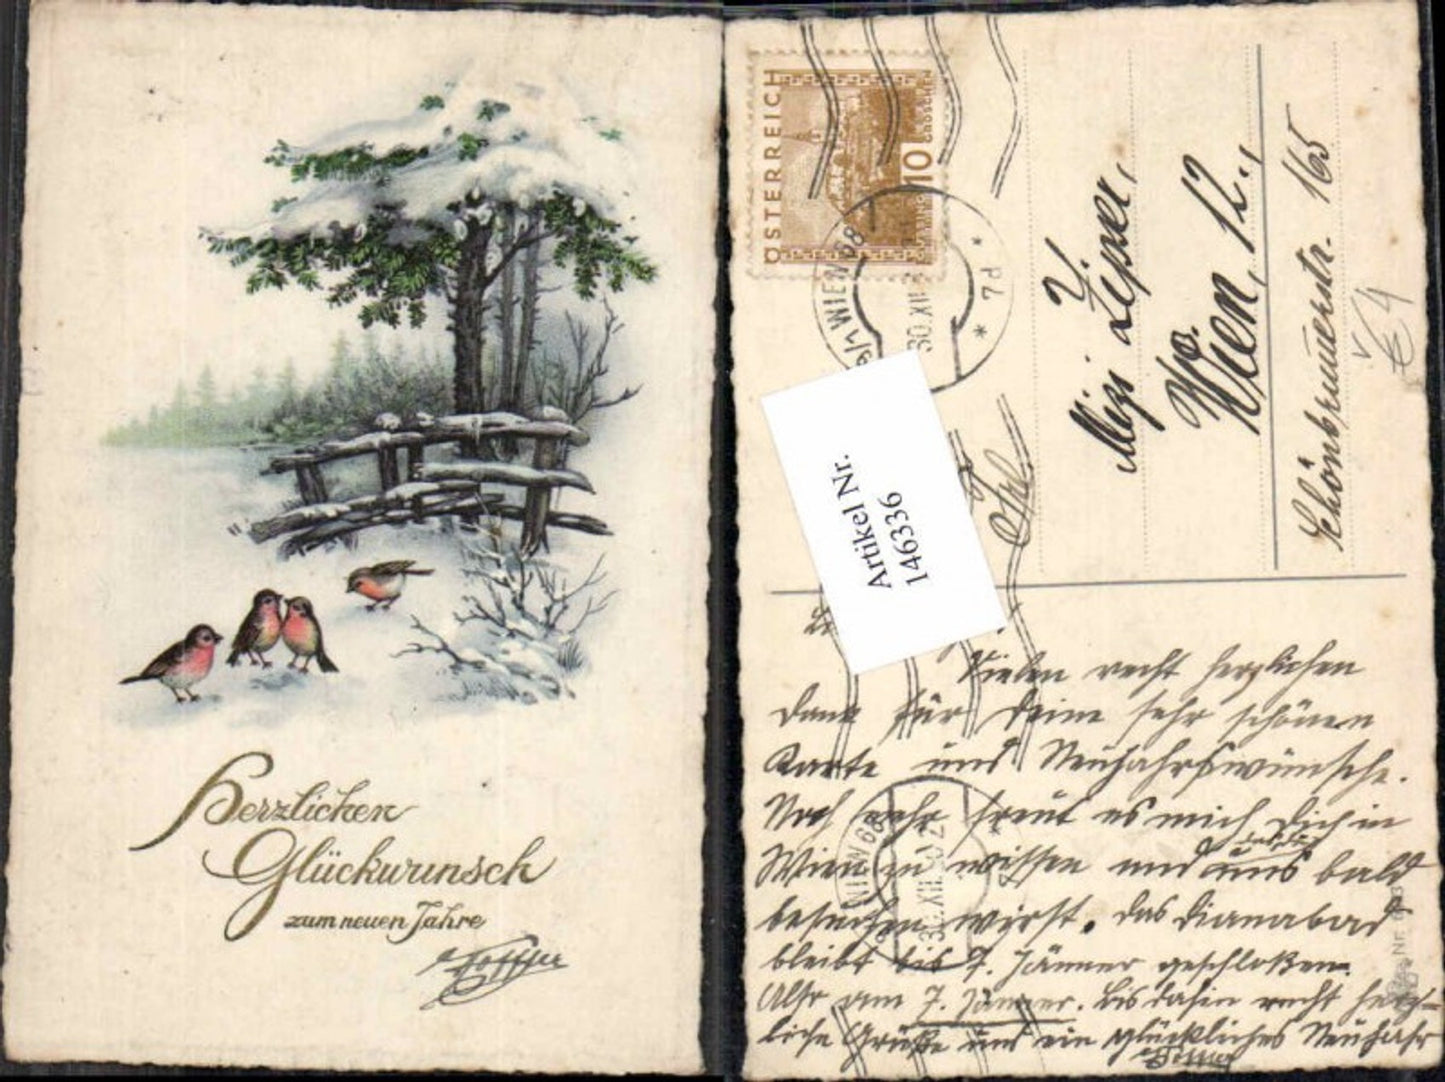 Herzlichen
Glückwunsch
zum neuen Jahre
ÖSTERREICH
10
GROSCHEN
WIEN 68
30.XII.
* 7d *
Artikel Nr.
146336
Mizi
Wien, 12.,
Schönbrunnerstr. 165
€ 4
Vielen recht herzlichen
Dank für Deine sehr schönen
Karte und Neujahrswünsche.
Noch mehr freut es mich Dich in
Wien zu wissen und uns bald
besuchen wirst. Das Dianabad
bleibt bis 7. Jänner geschloßen.
Also am 7. Jänner. Bis dahin recht herz-
liche Grüße und ein glückliches Neujahr
WIEN 68
Nr.